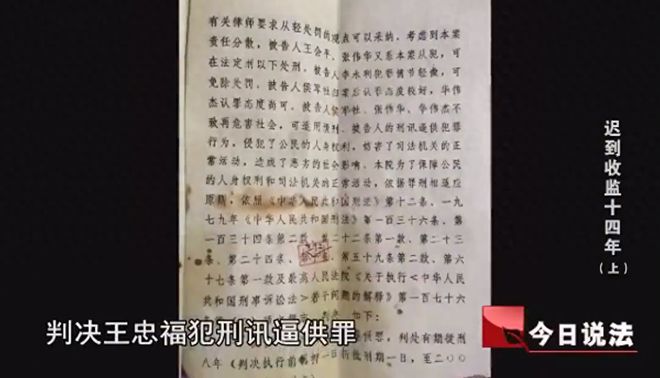 有关律师要求从轻处罚的观点可以采纳。考虑到本案
责任分散，被告人王会平、张伟华又系本案从犯，可
在法定刑以下处刑。被告人李永利犯罪情节轻微，可
免除处罚。被告人侯军社归案后认罪态度较好，华伟
杰认罪态度尚可。被告人侯军社、张伟华、华伟杰不
致再危害社会，可适用缓刑。被告人的刑讯逼供犯罪
行为，侵犯了公民的人身权利，妨害了司法机关的正
常活动，造成了恶劣的社会影响。本院为了保障公民
的人身权利和司法机关的正常活动，依据罪刑相适应
原则，依照《中华人民共和国刑法》第十二条、一九
七九年《中华人民共和国刑法》第一百三十六条、第
一百三十四条第二款、第二十二条第一款、第二十三
条、第二十四条、第五十九条第二款、第六
十七条第一款及最高人民法院《关于执行〈中华人民
共和国刑事诉讼法〉若干问题的解释》第一百七十六
如下：
供罪，判处有期徒刑
八年（判决执行前羁押一日折抵刑期一日，至二〇〇
迟到收监十四年
（上）
判决王忠福犯刑讯逼供罪
今日说法